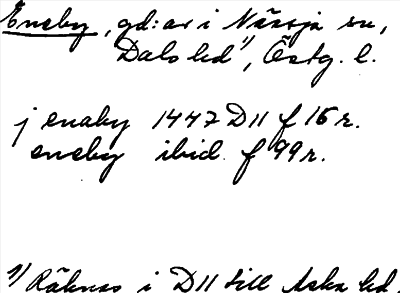 Eneby, gd:ar i Nässja sn,
Dals hd¹⁾, Östg. l.
j enaby 1447 D11 f 15r.
eneby ibid. f 99r.
¹⁾ Räknas i D11 till Aska hd.